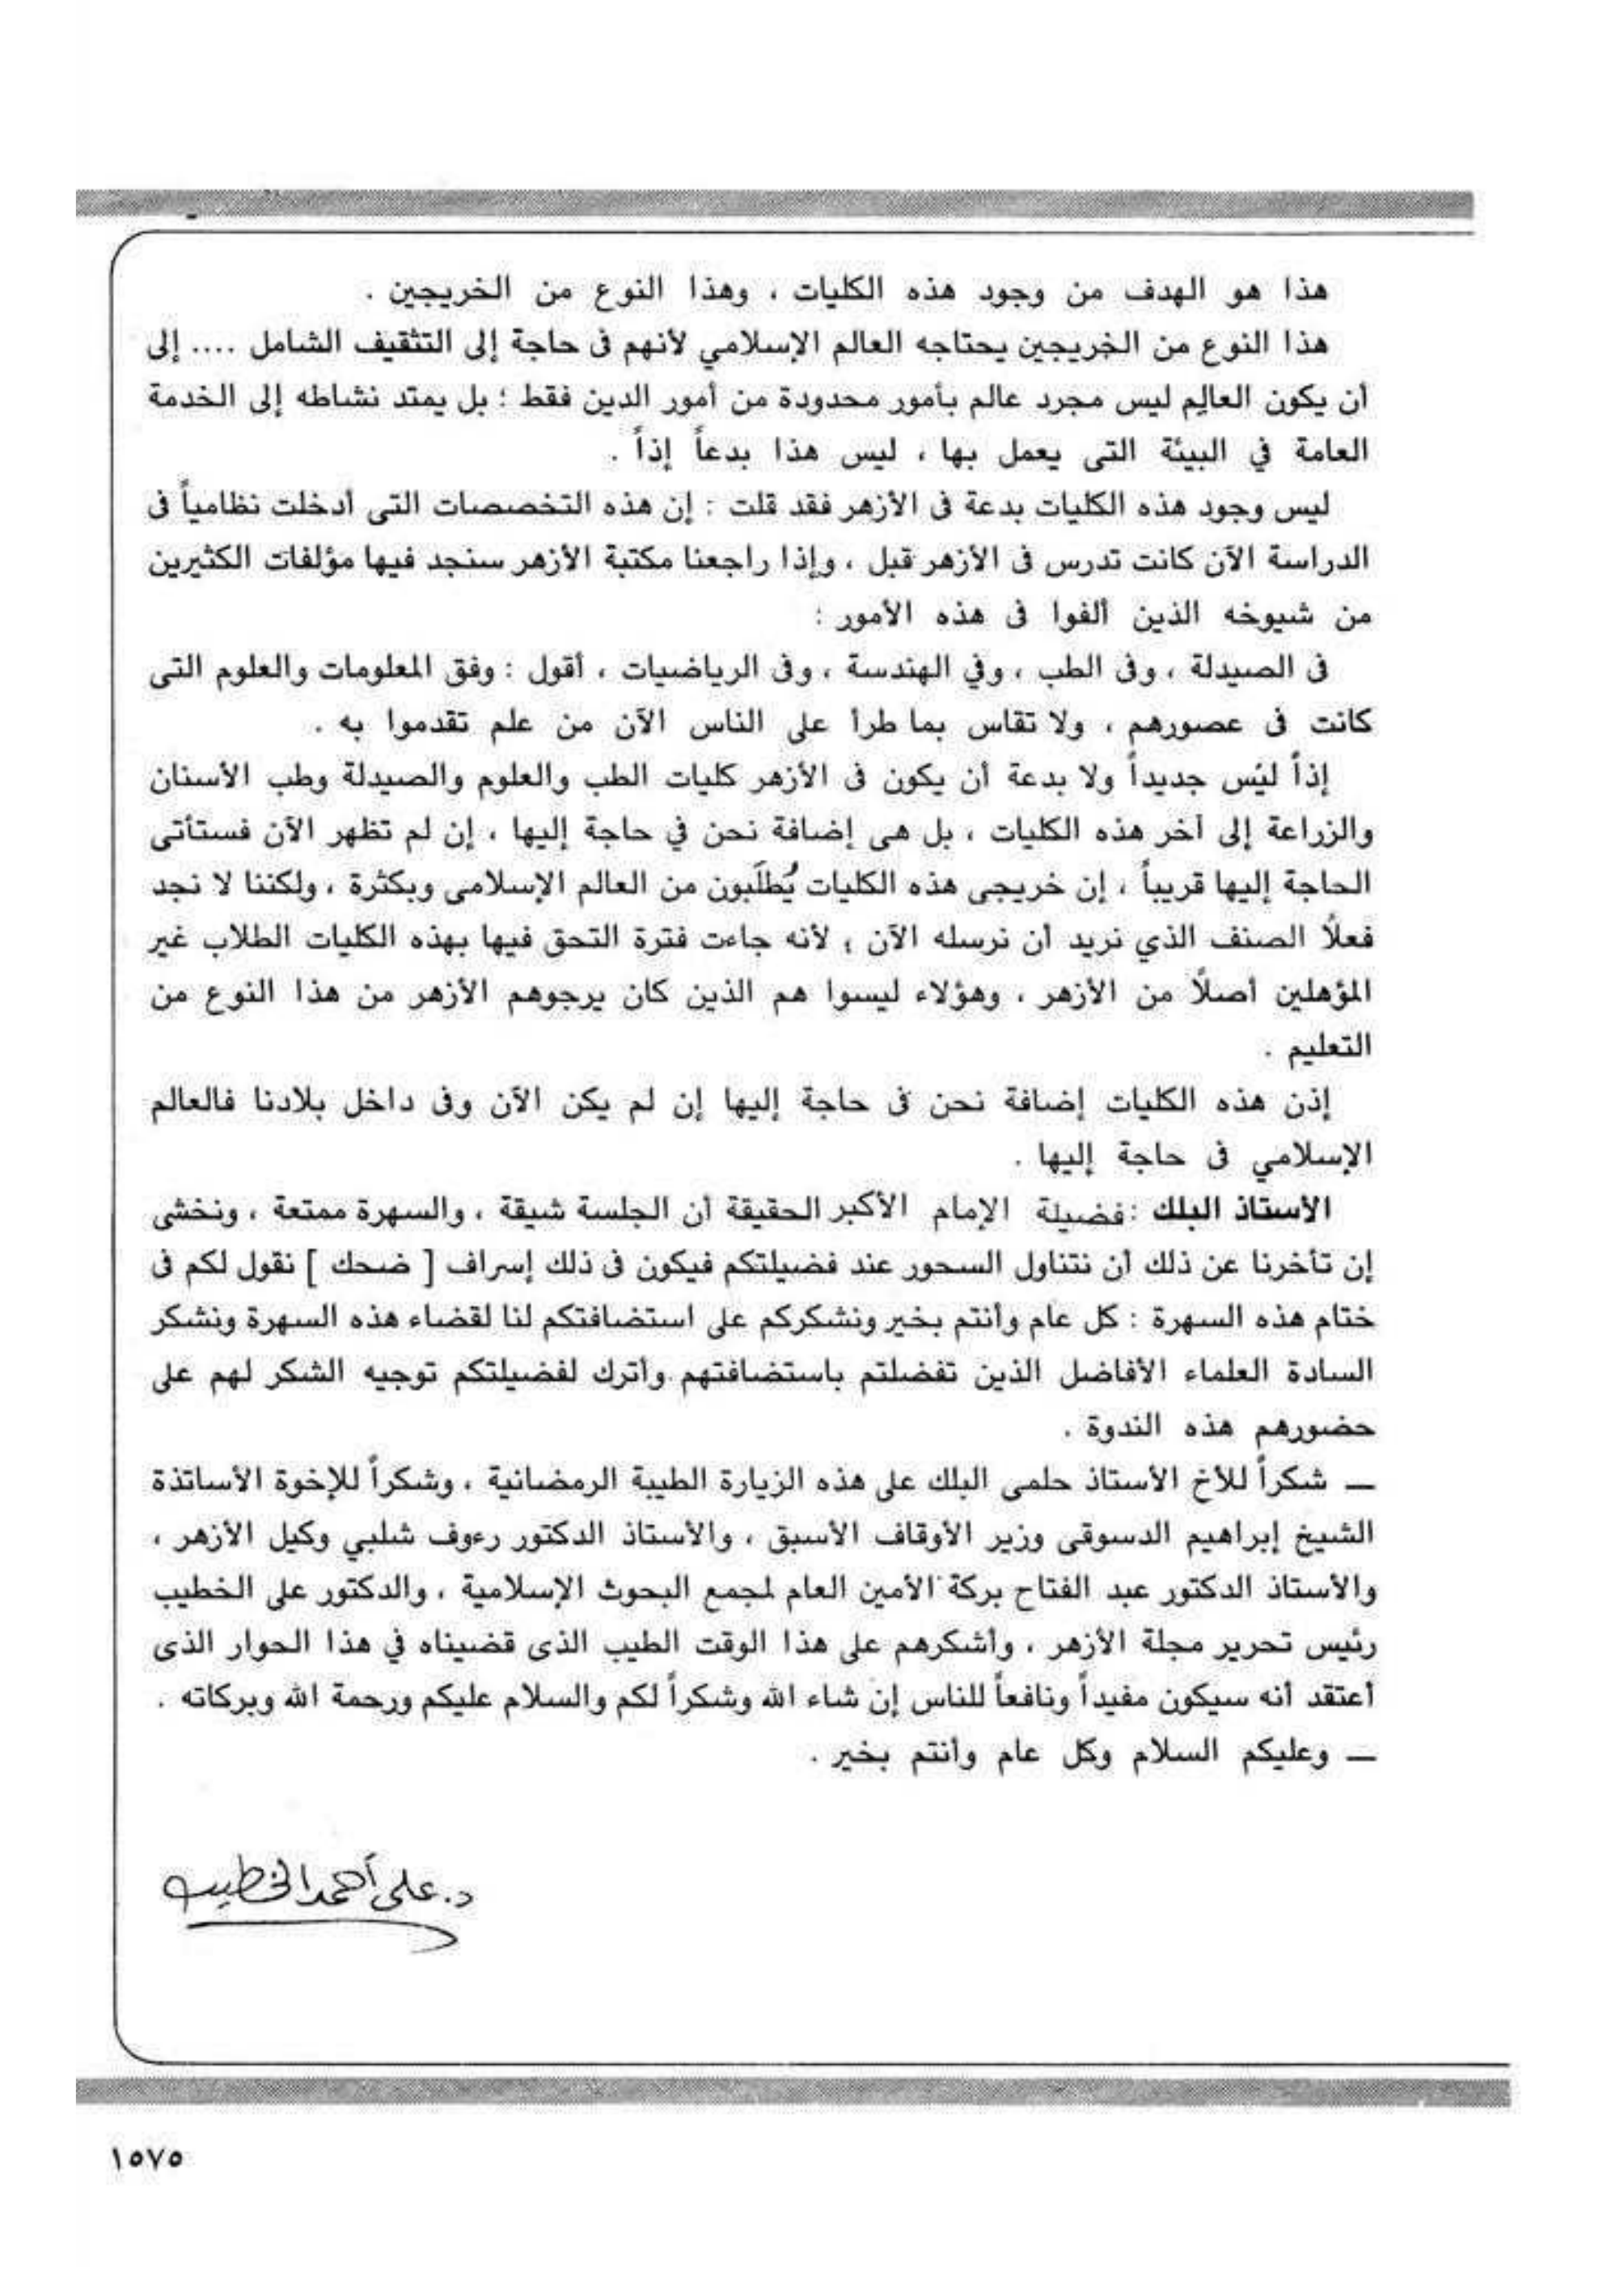 هذا هو الهدف من وجود هذه الكليات ، وهذا النوع من الخريجين .
هذا النوع من الخريجين يحتاجه العالم الإسلامي لأنهم فى حاجة إلى التثقيف الشامل .... إلى
أن يكون العالِم ليس مجرد عالم بأمور محدودة من أمور الدين فقط ؛ بل يمتد نشاطه إلى الخدمة
العامة في البيئة التى يعمل بها ، ليس هذا بدعاً إذاً .
ليس وجود هذه الكليات بدعة فى الأزهر فقد قلت : إن هذه التخصصات التى أدخلت نظامياً فى
الدراسة الآن كانت تدرس فى الأزهر قبل ، وإذا راجعنا مكتبة الأزهر سنجد فيها مؤلفات الكثيرين
من شيوخه الذين ألفوا فى هذه الأمور :
فى الصيدلة ، وفى الطب ، وفي الهندسة ، وفى الرياضيات ، أقول : وفق المعلومات والعلوم التى
كانت فى عصورهم ، ولا تقاس بما طرأ على الناس الآن من علم تقدموا به .
إذاً ليس جديداً ولا بدعة أن يكون فى الأزهر كليات الطب والعلوم والصيدلة وطب الأسنان
والزراعة إلى آخر هذه الكليات ، بل هى إضافة نحن في حاجة إليها ، إن لم تظهر الآن فستأتى
الحاجة إليها قريباً ، إن خريجى هذه الكليات يُطلَبون من العالم الإسلامى وبكثرة ، ولكننا لا نجد
فعلًا الصنف الذي نريد أن نرسله الآن ؛ لأنه جاءت فترة التحق فيها بهذه الكليات الطلاب غير
المؤهلين أصلًا من الأزهر ، وهؤلاء ليسوا هم الذين كان يرجوهم الأزهر من هذا النوع من
التعليم .
إذن هذه الكليات إضافة نحن فى حاجة إليها إن لم يكن الآن وفى داخل بلادنا فالعالم
الإسلامي فى حاجة إليها .
الأستاذ البلك : فضيلة الإمام الأكبر الحقيقة أن الجلسة شيقة ، والسهرة ممتعة ، ونخشى
إن تأخرنا عن ذلك أن نتناول السحور عند فضيلتكم فيكون فى ذلك إسراف [ ضحك ] نقول لكم فى
ختام هذه السهرة : كل عام وأنتم بخير ونشكركم على استضافتكم لنا لقضاء هذه السهرة ونشكر
السادة العلماء الأفاضل الذين تفضلتم باستضافتهم وأترك لفضيلتكم توجيه الشكر لهم على
حضورهم هذه الندوة .
ــ شكراً للأخ الأستاذ حلمى البلك على هذه الزيارة الطيبة الرمضانية ، وشكراً للإخوة الأساتذة
الشيخ إبراهيم الدسوقى وزير الأوقاف الأسبق ، والأستاذ الدكتور رءوف شلبي وكيل الأزهر ،
والأستاذ الدكتور عبد الفتاح بركة الأمين العام لمجمع البحوث الإسلامية ، والدكتور على الخطيب
رئيس تحرير مجلة الأزهر ، وأشكرهم على هذا الوقت الطيب الذى قضيناه في هذا الحوار الذى
أعتقد أنه سيكون مفيداً ونافعاً للناس إن شاء الله وشكراً لكم والسلام عليكم ورحمة الله وبركاته .
ــ وعليكم السلام وكل عام وأنتم بخير .
د. على أحمد الخطيب
١٥٧٥